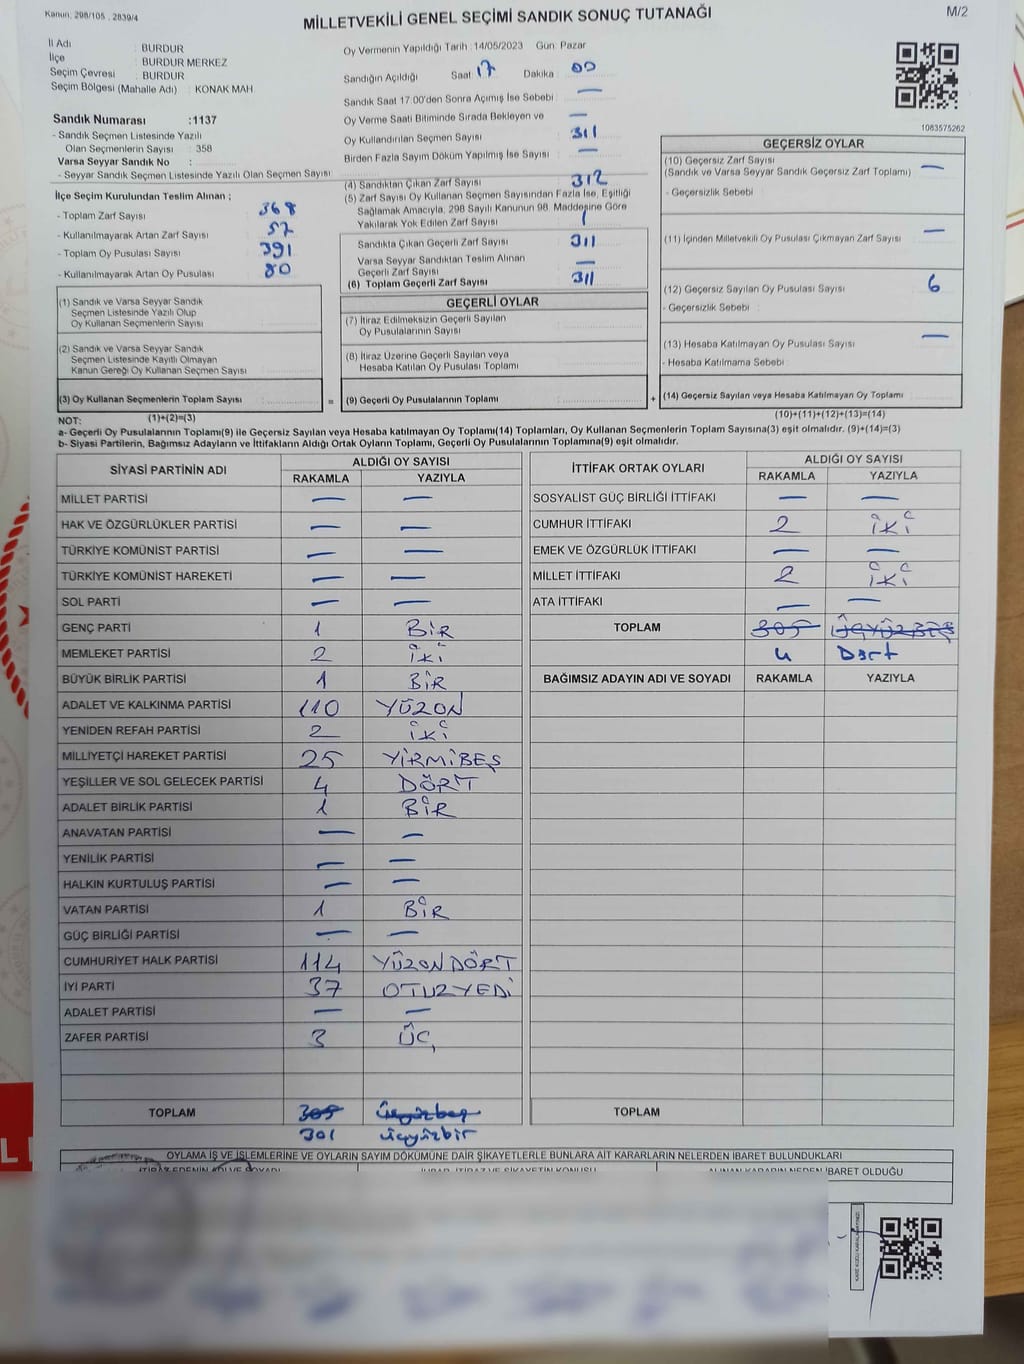 Kanun. 298/105 , 2839/4
MİLLETVEKİLİ GENEL SEÇİMİ SANDIK SONUÇ TUTANAĞI
M/2
İl Adı : BURDUR
İlçe : BURDUR MERKEZ
Seçim Çevresi : BURDUR
Seçim Bölgesi (Mahalle Adı) : KONAK MAH
Sandık Numarası :1137
- Sandık Seçmen Listesinde Yazılı
Olan Seçmenlerin Sayısı : 358
Varsa Seyyar Sandık No :
- Seyyar Sandık Seçmen Listesinde Yazılı Olan Seçmen Sayısı :
İlçe Seçim Kurulundan Teslim Alınan ;
- Toplam Zarf Sayısı : 368
- Kullanılmayarak Artan Zarf Sayısı : 57
- Toplam Oy Pusulası Sayısı : 391
- Kullanılmayarak Artan Oy Pusulası : 80
(1) Sandık ve Varsa Seyyar Sandık
Seçmen Listesinde Yazılı Olup
Oy Kullanan Seçmenlerin Sayısı :
(2) Sandık ve Varsa Seyyar Sandık
Seçmen Listesinde Kayıtlı Olmayan
Kanun Gereği Oy Kullanan Seçmen Sayısı :
(3) Oy Kullanan Seçmenlerin Toplam Sayısı : =
Oy Vermenin Yapıldığı Tarih :14/05/2023 Gün: Pazar
Sandığın Açıldığı Saat 17 Dakika 00
Sandık Saat 17.00'den Sonra Açımış İse Sebebi : —
Oy Verme Saati Bitiminde Sırada Bekleyen ve : —
Oy Kullandırılan Seçmen Sayısı 311
Birden Fazla Sayım Döküm Yapılmış İse Sayısı : —
(4) Sandıktan Çıkan Zarf Sayısı : 312
(5) Zarf Sayısı Oy Kullanan Seçmen Sayısından Fazla İse, Eşitliği
Sağlamak Amacıyla, 298 Sayılı Kanunun 98. Maddesine Göre
Yakılarak Yok Edilen Zarf Sayısı : 1
Sandıkta Çıkan Geçerli Zarf Sayısı : 311
Varsa Seyyar Sandıktan Teslim Alınan
Geçerli Zarf Sayısı : —
(6) Toplam Geçerli Zarf Sayısı : 311
GEÇERLİ OYLAR
(7) İtiraz Edilmeksizin Geçerli Sayılan
Oy Pusulalarının Sayısı :
(8) İtiraz Üzerine Geçerli Sayılan veya
Hesaba Katılan Oy Pusulası Toplamı :
(9) Geçerli Oy Pusulalarının Toplamı : +
1083575262
GEÇERSİZ OYLAR
(10) Geçersiz Zarf Sayısı
(Sandık ve Varsa Seyyar Sandık Geçersiz Zarf Toplamı) : —
- Geçersizlik Sebebi :
(11) İçinden Milletvekili Oy Pusulası Çıkmayan Zarf Sayısı : —
(12) Geçersiz Sayılan Oy Pusulası Sayısı : 6
- Geçersizlik Sebebi :
(13) Hesaba Katılmayan Oy Pusulası Sayısı : —
- Hesaba Katılmama Sebebi :
(14) Geçersiz Sayılan veya Hesaba Katılmayan Oy Toplamı :
NOT: (1)+(2)=(3) (10)+(11)+(12)+(13)=(14)
a- Geçerli Oy Pusulalarının Toplamı(9) ile Geçersiz Sayılan veya Hesaba katılmayan Oy Toplamı(14) Toplamları, Oy Kullanan Seçmenlerin Toplam Sayısına(3) eşit olmalıdır. (9)+(14)=(3)
b- Siyasi Partilerin, Bağımsız Adayların ve İttifakların Aldığı Ortak Oyların Toplamı, Geçerli Oy Pusulalarının Toplamına(9) eşit olmalıdır.
SİYASİ PARTİNİN ADI ALDIĞI OY SAYISI
RAKAMLA YAZIYLA
MİLLET PARTİSİ — —
HAK VE ÖZGÜRLÜKLER PARTİSİ — —
TÜRKİYE KOMÜNİST PARTİSİ — —
TÜRKİYE KOMÜNİST HAREKETİ — —
SOL PARTİ — —
GENÇ PARTİ 1 BİR
MEMLEKET PARTİSİ 2 İKİ
BÜYÜK BİRLİK PARTİSİ 1 BİR
ADALET VE KALKINMA PARTİSİ 110 YÜZON
YENİDEN REFAH PARTİSİ 2 İKİ
MİLLİYETÇİ HAREKET PARTİSİ 25 YİRMİBEŞ
YEŞİLLER VE SOL GELECEK PARTİSİ 4 DÖRT
ADALET BİRLİK PARTİSİ 1 BİR
ANAVATAN PARTİSİ — —
YENİLİK PARTİSİ — —
HALKIN KURTULUŞ PARTİSİ — —
VATAN PARTİSİ 1 BİR
GÜÇ BİRLİĞİ PARTİSİ — —
CUMHURİYET HALK PARTİSİ 114 YÜZONDÖRT
İYİ PARTİ 37 OTUZYEDİ
ADALET PARTİSİ — —
ZAFER PARTİSİ 3 ÜÇ
TOPLAM 305 üçyüzbeş
301 üçyüzbir
İTTİFAK ORTAK OYLARI ALDIĞI OY SAYISI
RAKAMLA YAZIYLA
SOSYALİST GÜÇ BİRLİĞİ İTTİFAKI — —
CUMHUR İTTİFAKI 2 İKİ
EMEK VE ÖZGÜRLÜK İTTİFAKI — —
MİLLET İTTİFAKI 2 İKİ
ATA İTTİFAKI — —
TOPLAM 305 ÜÇYÜZBEŞ
4 Dört
BAĞIMSIZ ADAYIN ADI VE SOYADI RAKAMLA YAZIYLA
TOPLAM
OYLAMA İŞ VE İŞLEMLERİNE VE OYLARIN SAYIM DÖKÜMÜNE DAİR ŞİKAYETLERLE BUNLARA AİT KARARLARIN NELERDEN İBARET BULUNDUKLARI
İTİRAZ EDENİN ADI VE SOYADI İHBAR, İTİRAZ VE ŞİKAYETİN KONUSU ALINAN KARARIN NEDEN İBARET OLDUĞU